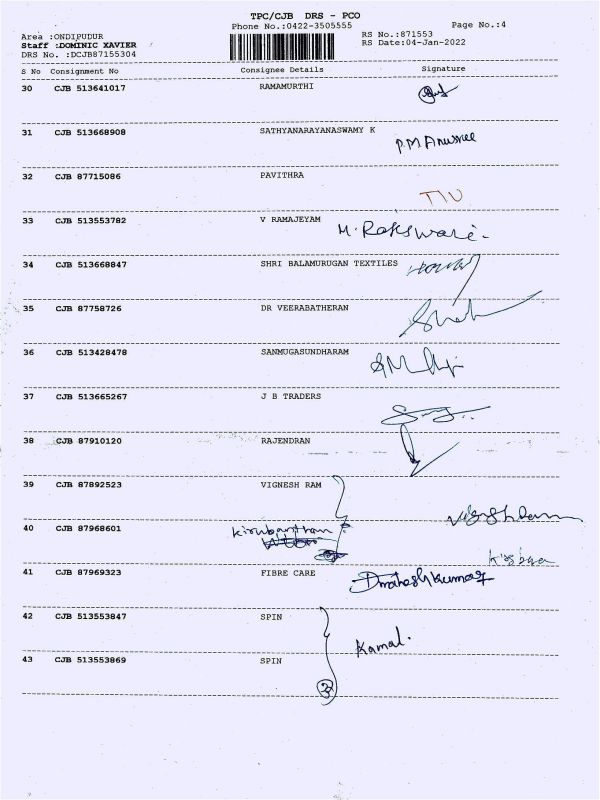 TPC/CJB DRS - PCO
Phone No.:0422-3505555
Page No.:4
Area :ONDIPUDUR
RS No.:871553
Staff :DOMINIC XAVIER
RS Date:04-Jan-2022
DRS No. :DCJB87155304
S No Consignment No Consignee Details Signature
30 CJB 513641017 RAMAMURTHI
31 CJB 513668908 SATHYANARAYANASWAMY K
P.M.Anusree
32 CJB 87715086 PAVITHRA
33 CJB 513553782 V RAMAJEYAM
M. Rakswari.
34 CJB 513668847 SHRI BALAMURUGAN TEXTILES
35 CJB 87758726 DR VEERABATHERAN
36 CJB 513428478 SANMUGASUNDHARAM
37 CJB 513665267 J B TRADERS
38 CJB 87910120 RAJENDRAN
39 CJB 87892523 VIGNESH RAM
40 CJB 87968601
41 CJB 87969323 FIBRE CARE
Dmaheshkumar
42 CJB 513553847 SPIN
Kamal.
43 CJB 513553869 SPIN
2